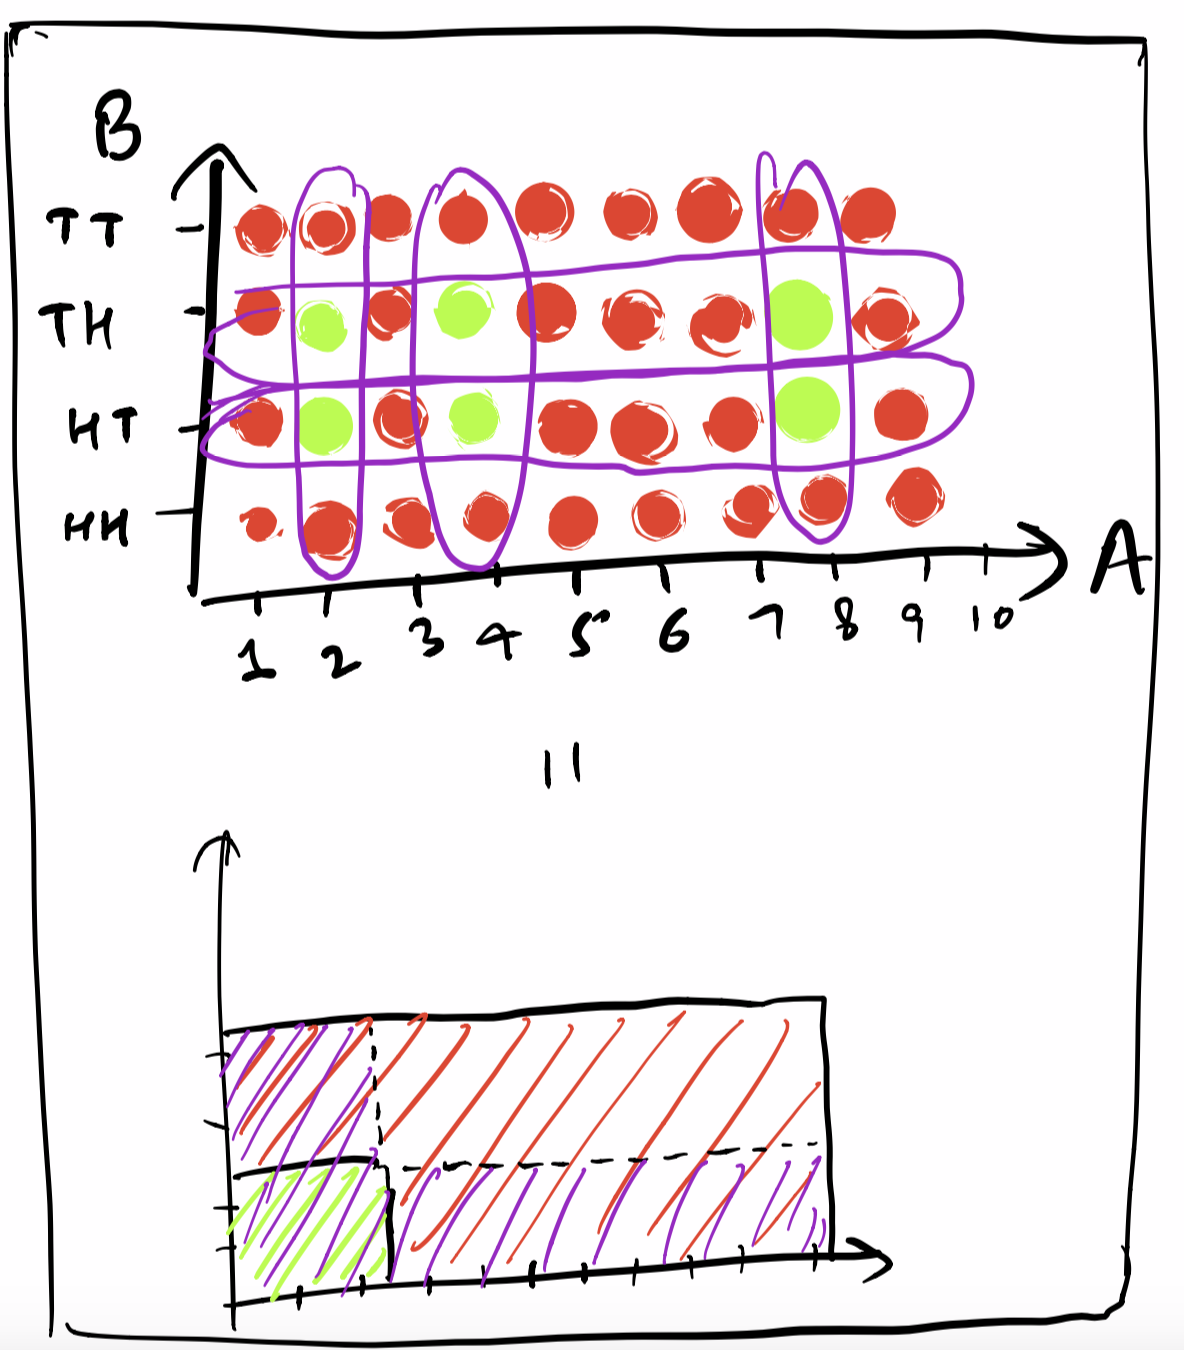 B
TT
TH
HT
HH
A
1 2 3 4 5 6 7 8 9 10
=